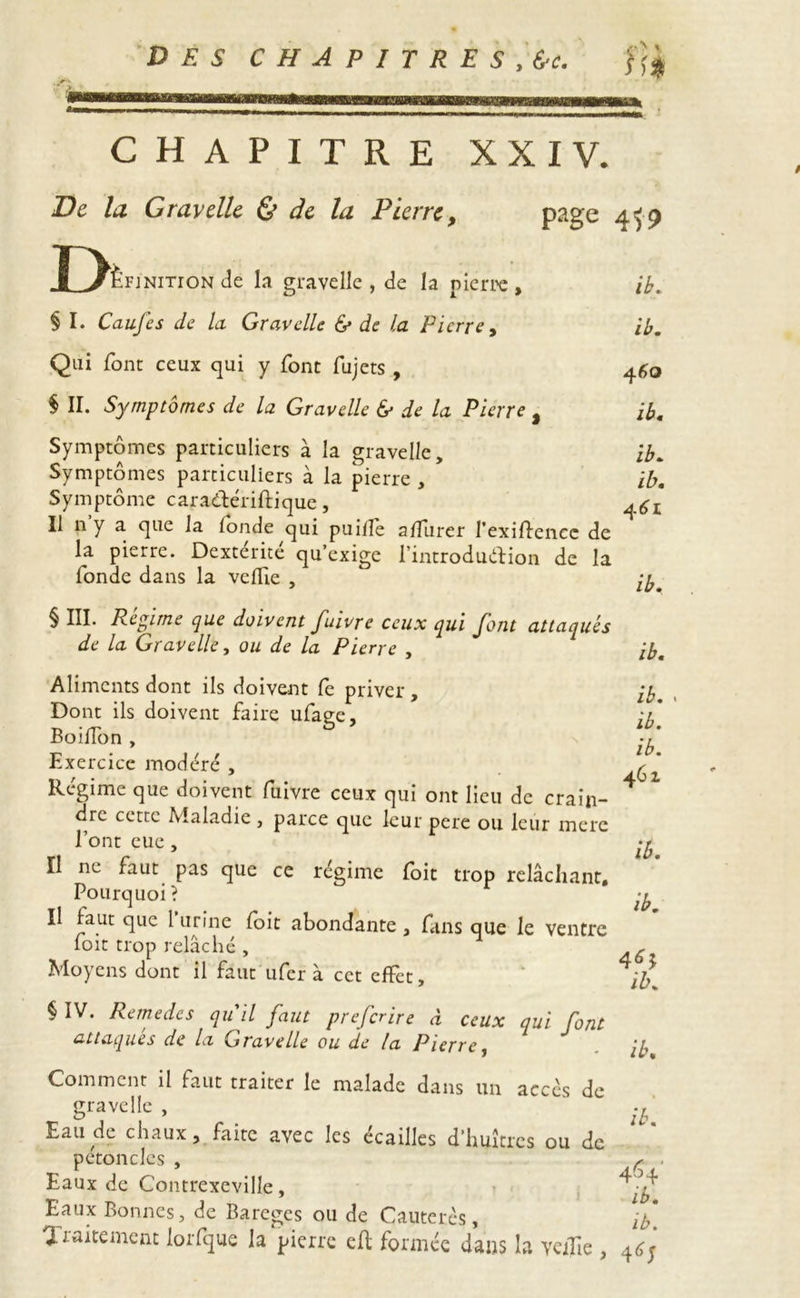 DES CHAPITRES, &c.
CHAPITRE XXIV.
De la Gravelle & de la Pierre, page 459
DÉFINITION de la gravelle, de la pierre, ib.
§ I. Cauſes de la Gravelle & de la Pierre, ib.
Qui ſont ceux qui y ſont ſujets, 460
§ II. Symptômes de la Gravelle & de la Pierre, ib.
Symptômes particuliers à la gravelle, ib.
Symptômes particuliers à la pierre, ib.
Symptôme caractériſtique, 461
Il n'y a que la ſonde qui puiſſe aſſurer l'exiſtence de
la pierre. Dextérité qu'exige l'introduction de la
ſonde dans la veſſie, ib.
§ III. Régime que doivent ſuivre ceux qui ſont attaqués
de la Gravelle, ou de la Pierre, ib.
Aliments dont ils doivent ſe priver, ib.
Dont ils doivent faire uſage, ib.
Boiſſon, ib.
Exercice modéré, 462
Régime que doivent ſuivre ceux qui ont lieu de crain-
dre cette Maladie, parce que leur pere ou leur mere
l'ont eue, ib.
Il ne faut pas que ce régime ſoit trop relâchant.
Pourquoi? ib.
Il faut que l'urine ſoit abondante, ſans que le ventre
ſoit trop relâché, 463
Moyens dont il faut uſer à cet effet, ib.
§ IV. Remedes qu'il faut preſcrire à ceux qui ſont
attaqués de la Gravelle ou de la Pierre, ib.
Comment il faut traiter le malade dans un accès de
gravelle, ib.
Eau de chaux, faite avec les écailles d'huîtres ou de
pétoncles, 464
Eaux de Contrexeville, ib.
Eaux Bonnes, de Bareges ou de Cauterès, ib.
Traitement lorſque la pierre eſt formée dans la veſſie, 465